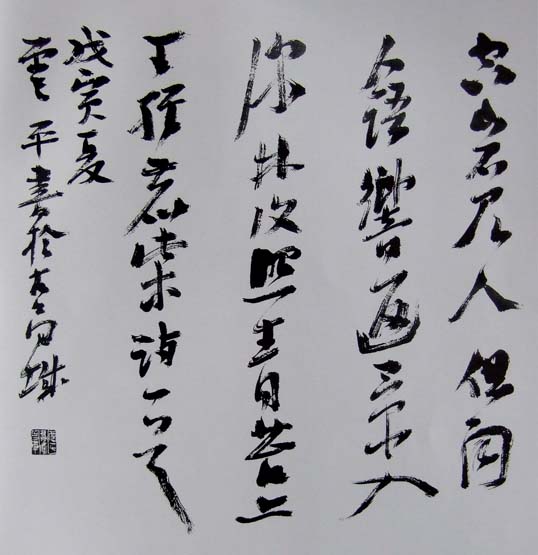 空山不見人但聞
人語響返景入
深林復照青苔上
王維鹿柴詩一首
戊寅夏
雲平書於城